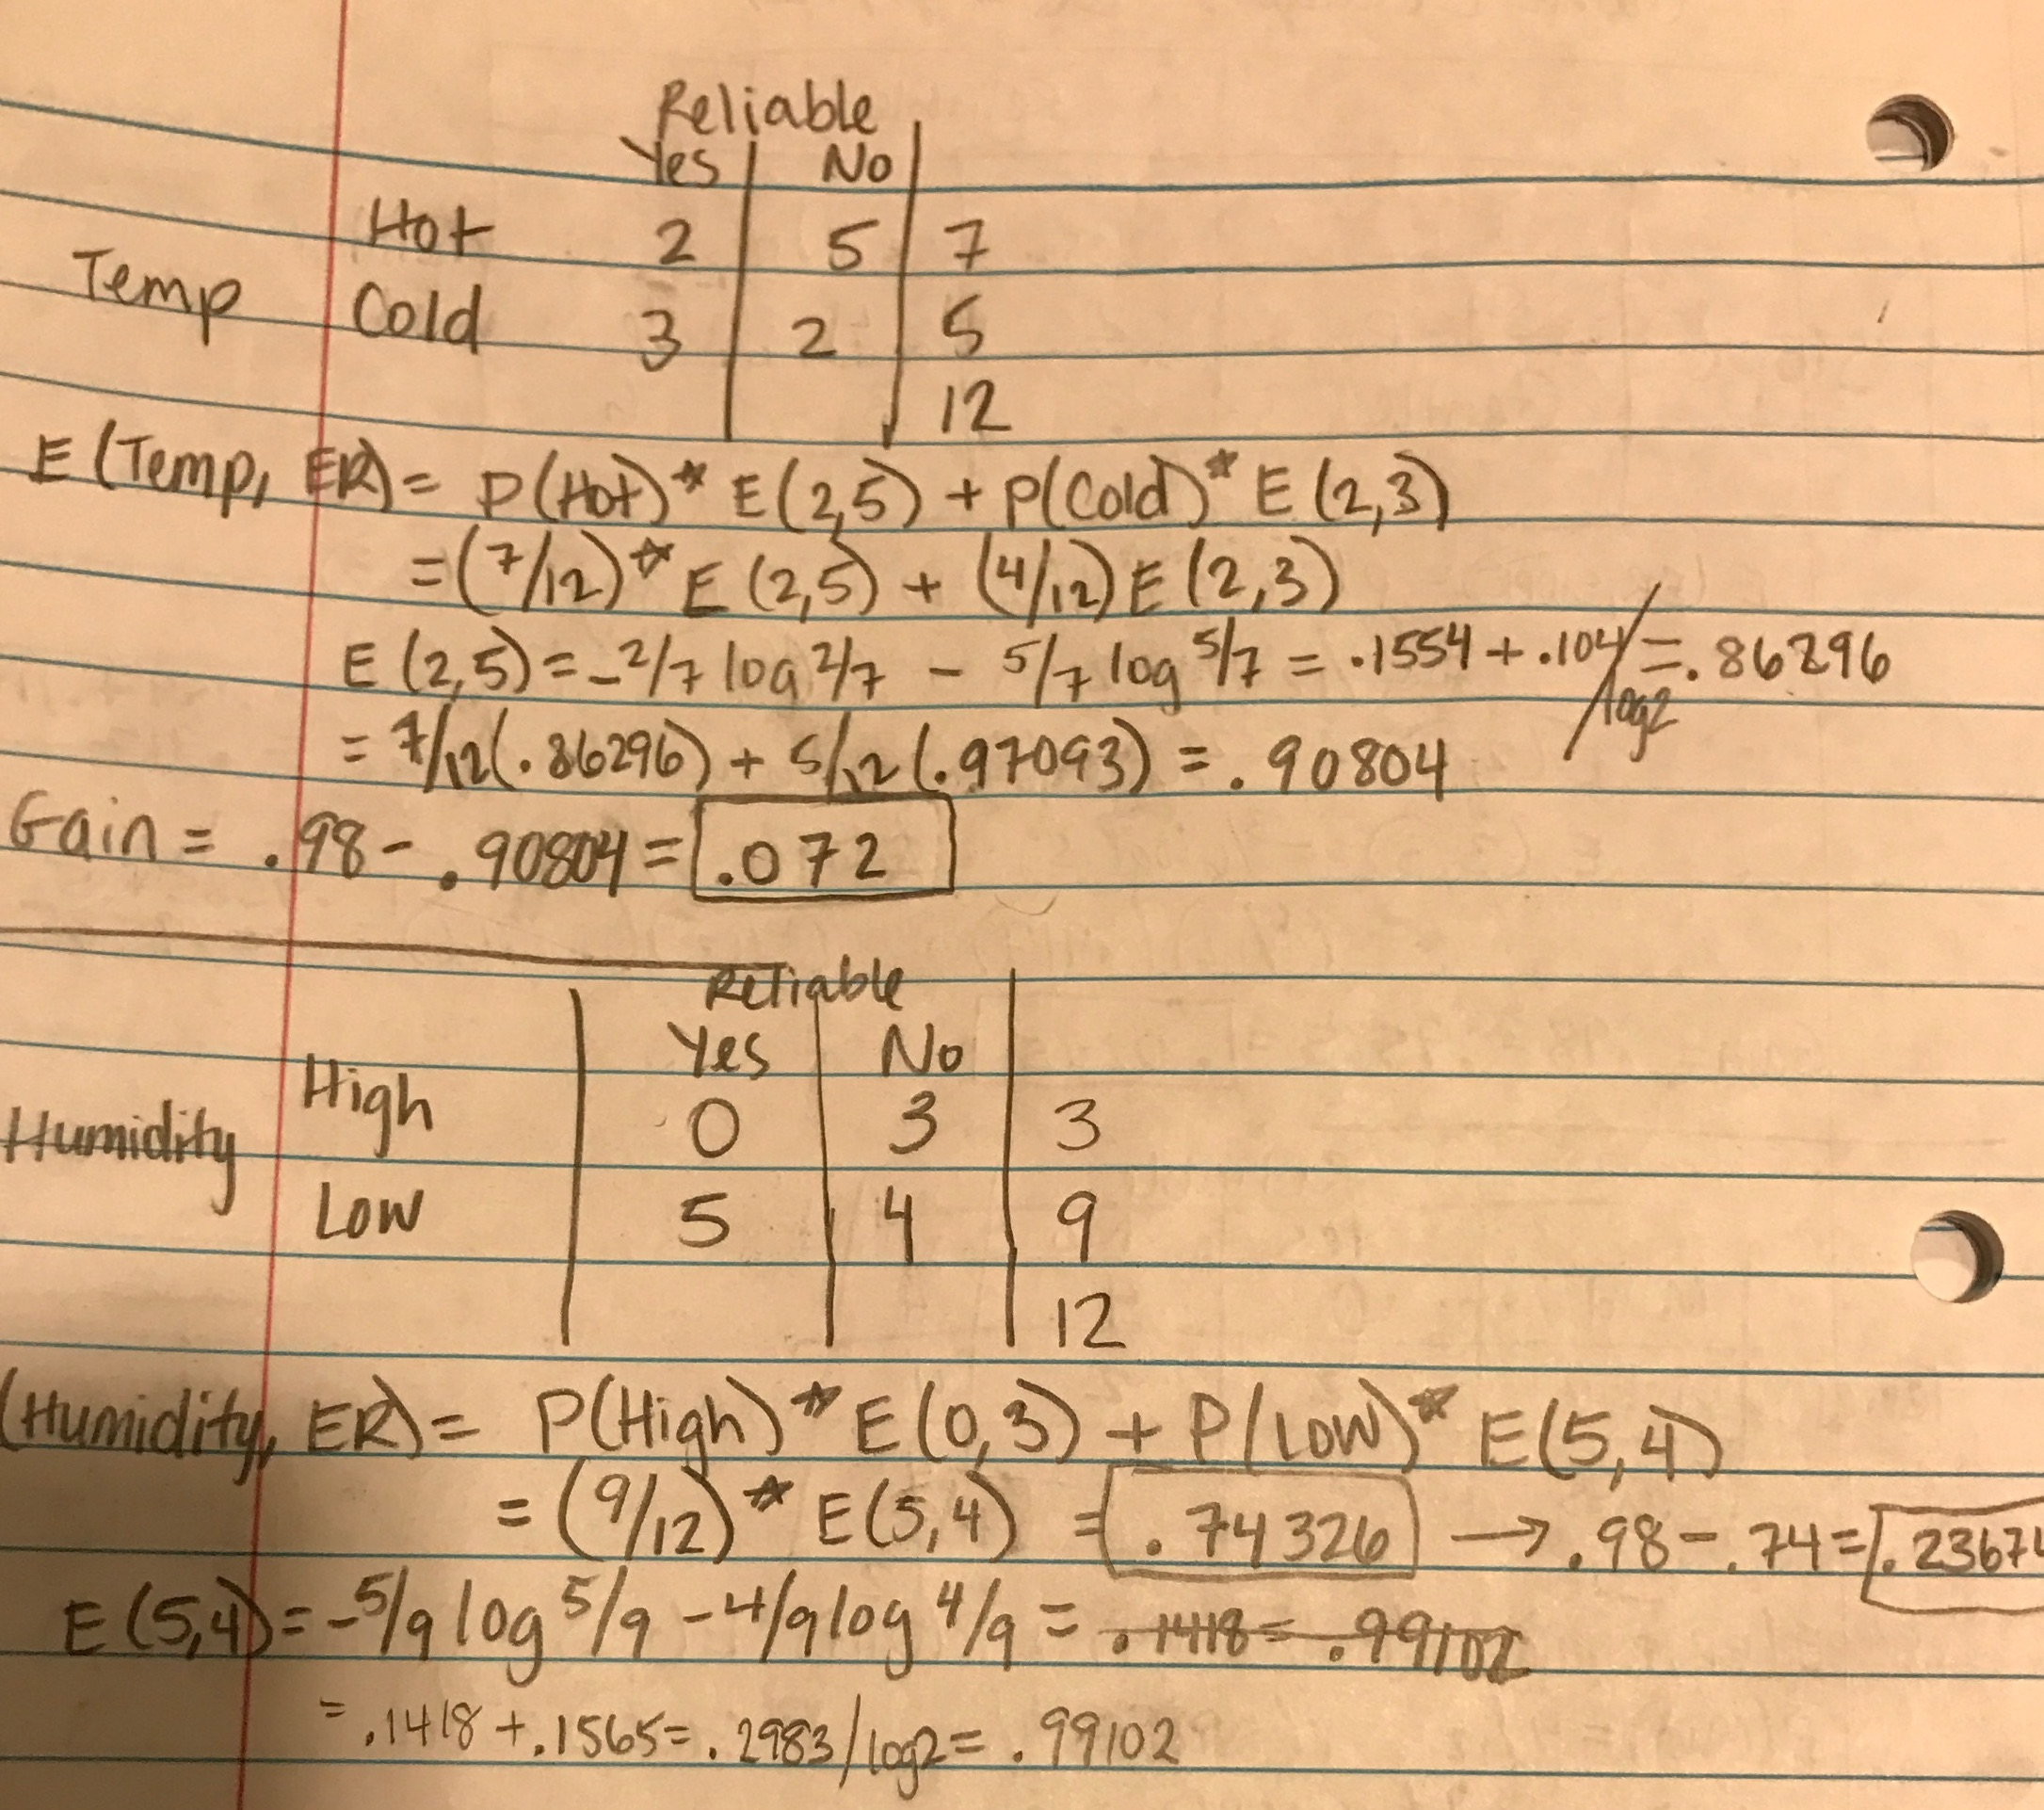 Reliable
Yes No
Hot 2 5 7
Temp Cold 3 2 5
12
E (Temp, ER) = P(Hot)* E(2,5) + P(Cold)* E(2,3)
= (7/12)* E(2,5) + (4/12) E(2,3)
E(2,5) = -2/7 log 2/7 - 5/7 log 5/7 = .1554 + .104 / log2 = .86296
= 7/12(.86296) + 5/12(.97093) = .90804
Gain = .98 - .90804 = .072
Reliable
Yes No
Humidity High 0 3 3
Low 5 4 9
12
(Humidity, ER) = P(High)* E(0,3) + P(Low)* E(5,4)
= (9/12)* E(5,4) = .74326 → .98 - .74 = .2367
E(5,4) = -5/9 log 5/9 - 4/9 log 4/9 = .1418 = .99102
= .1418 + .1565 = .2983/log2 = .99102